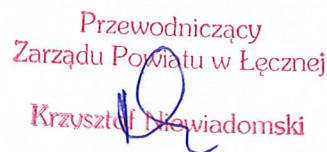 Przewodniczący
Zarządu Powiatu w Łęcznej
Krzysztof Niewiadomski